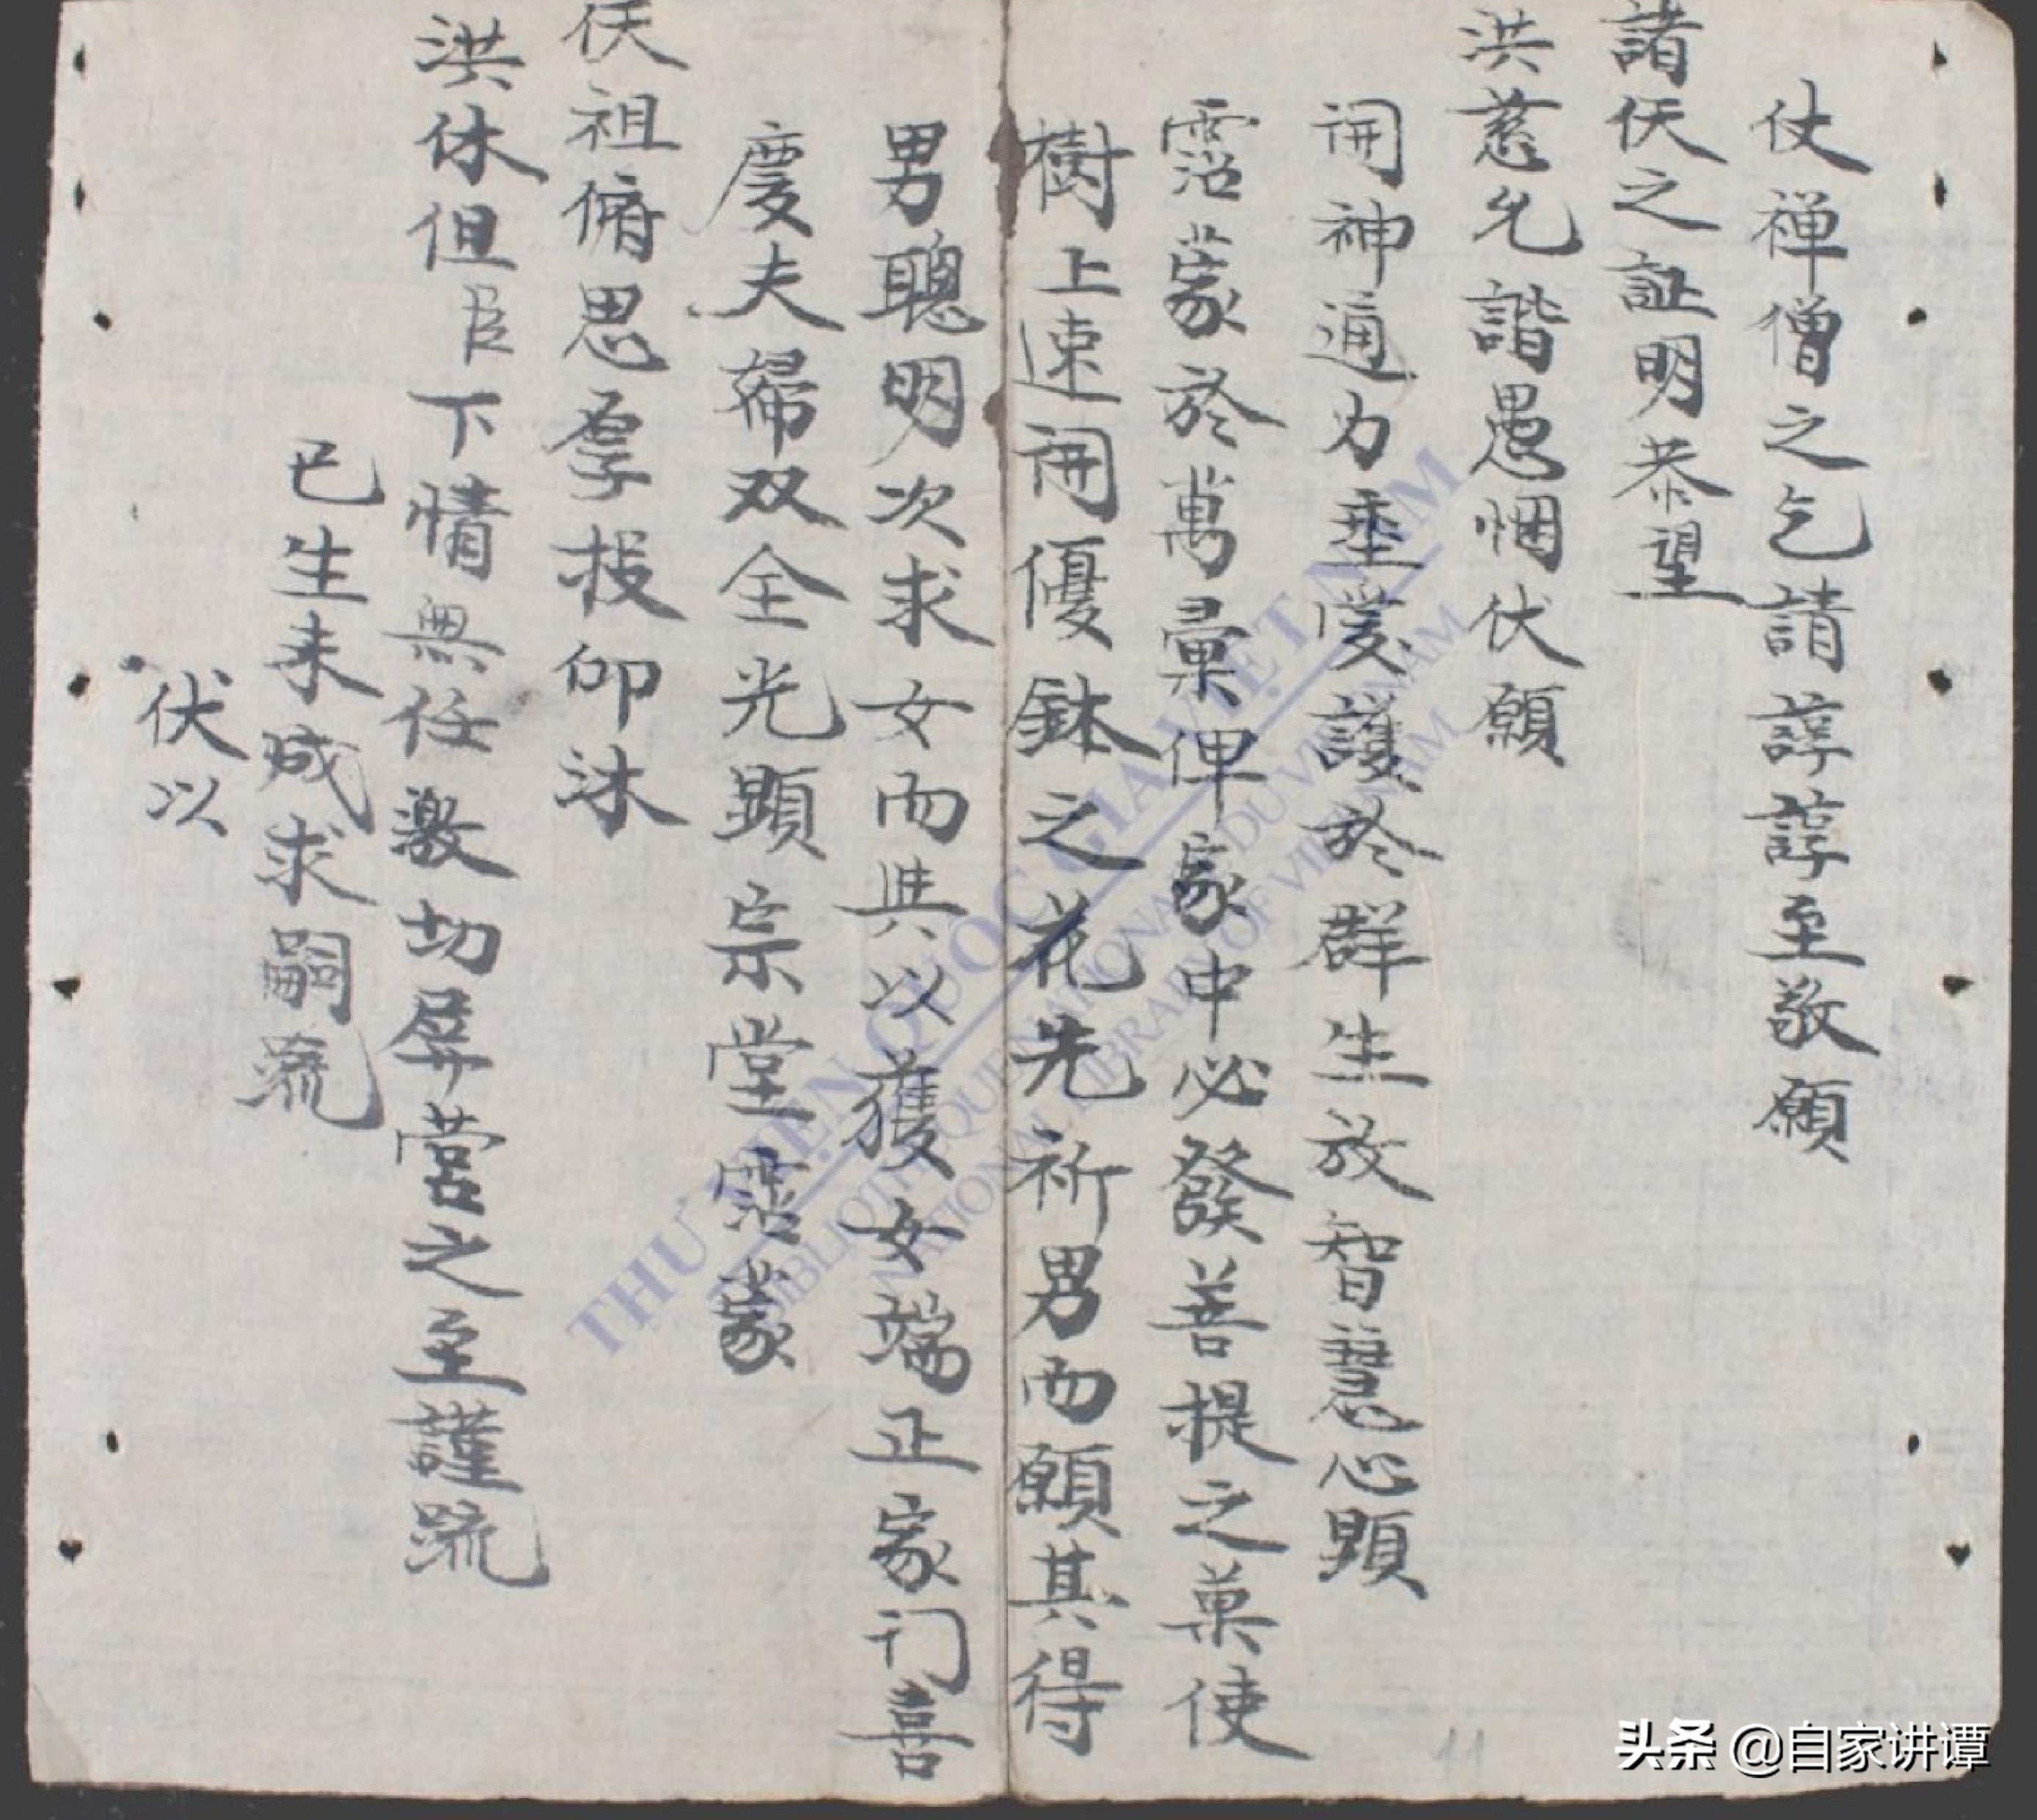 仗禅僧之乞請諄諄至敬願
諸仸之証明恭望
洪慈允諧愚悃伏願
開神通力垂愛護於群生放智慧心顕
霑蒙於萬彙俾家中必發善提之菓使
樹上速開優鉢之花先祈男而願其得
男聰明次求女而與以獲女端正家门喜
慶夫婦双全光顕宗堂霑蒙
仸祖俯思孪投仰沐
洪休但臣下情無任激切屏营之至謹疏
已生未成求嗣疏
伏以
THƯ VIỆN QUỐC GIA VIỆT NAM
BIBLIOTHÈQUE NATIONALE DU VIETNAM
NATIONAL LIBRARY OF VIETNAM
11
头条 @自家讲谭